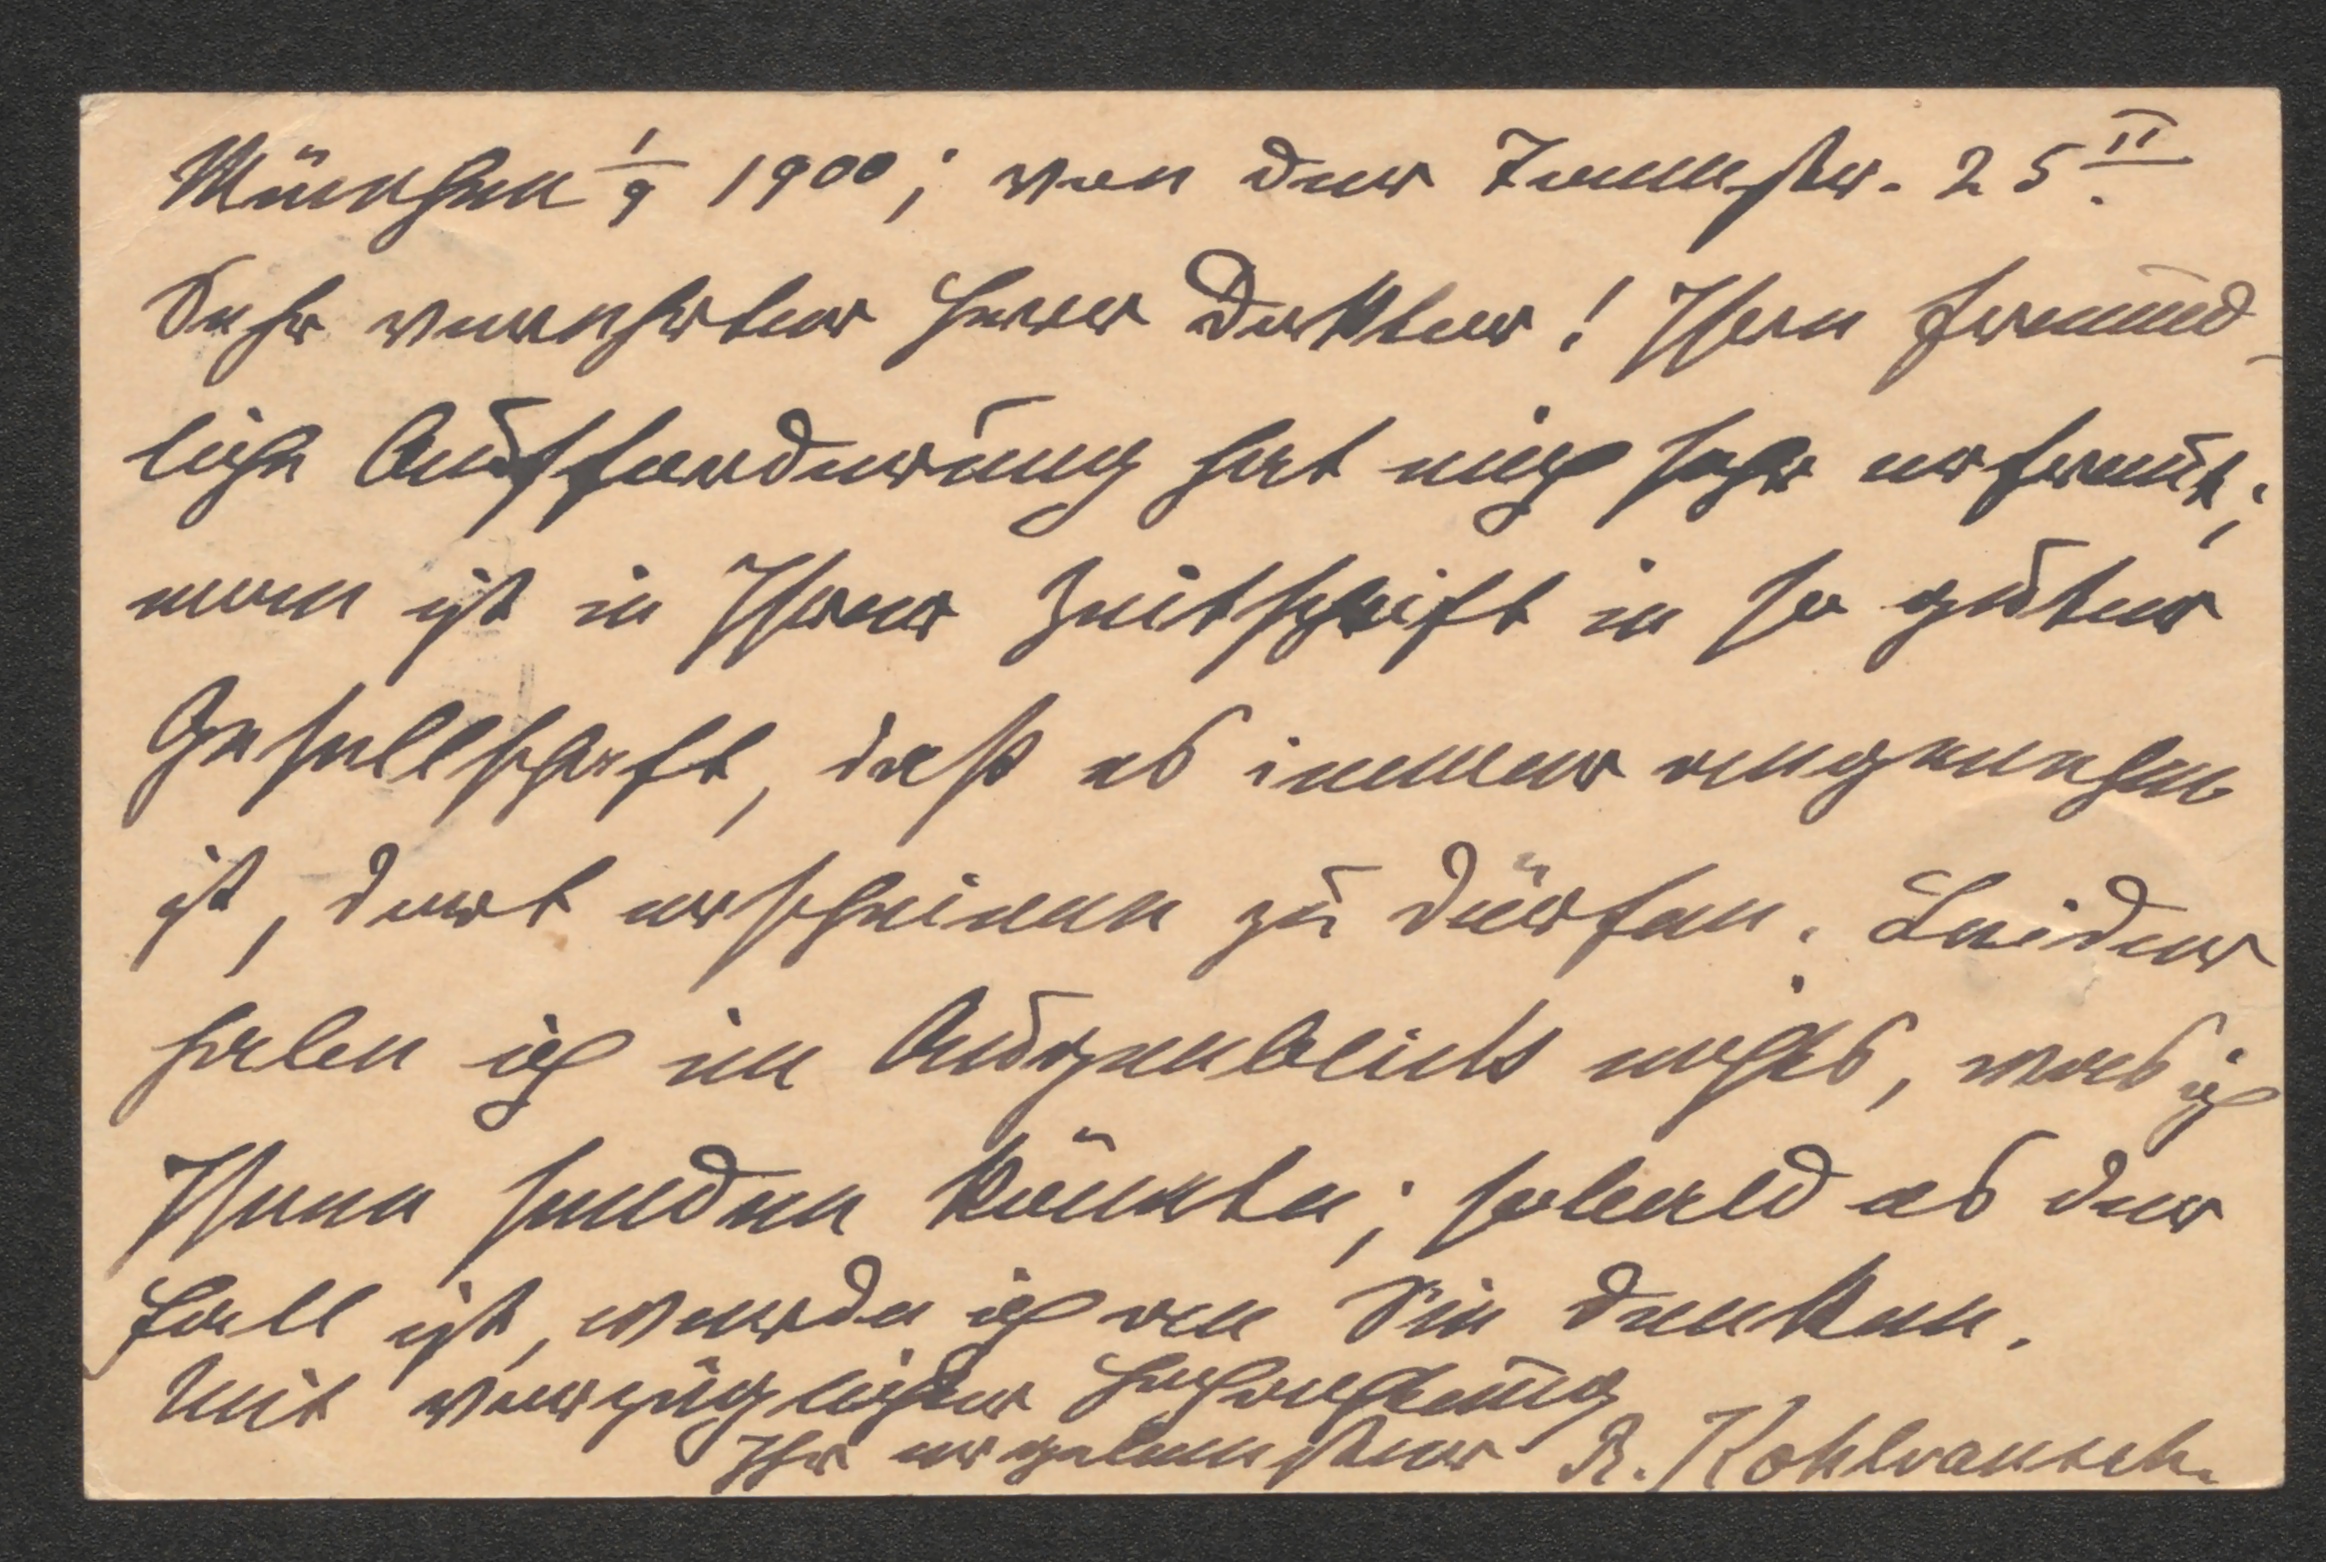 München 1/9 1900; von der Tannstr. 25 II.
Sehr verehrter Herr Doktor! Ihre freund-
liche Aufforderung hat mich sehr erfreut;
man ist in Ihrer Zeitschrift in so guter
Gesellschaft, daß es immer angenehm
ist, dort erscheinen zu dürfen. Leider
habe ich im Augenblick nichts, was ich
Ihnen senden könnte; sobald es der
Fall ist, werde ich an Sie denken.
Mit vorzüglicher Hochachtung
Ihr ergebenster R. Kohlrausch.